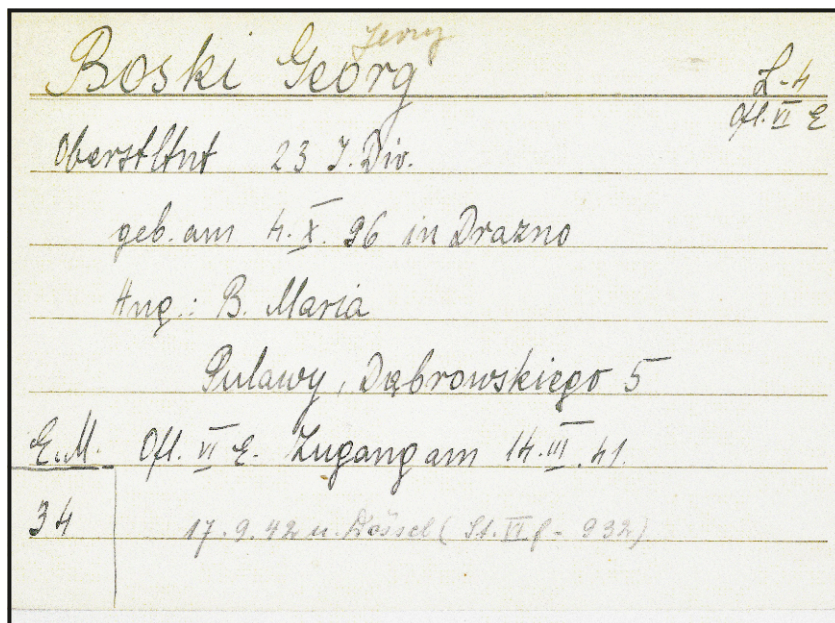 Jerzy
Boski Georg
L-4
Ofl. VI E
Oberstltnt 23 J. Div.
geb. am 4. X. 96 in Drazno
Ang.: B. Maria
Pulawy, Dąbrowskiego 5
E.M. Ofl. VI E. Zugang am 14. III. 41.
34
17. 9. 42 n. Dössel (St. VI f - 932)